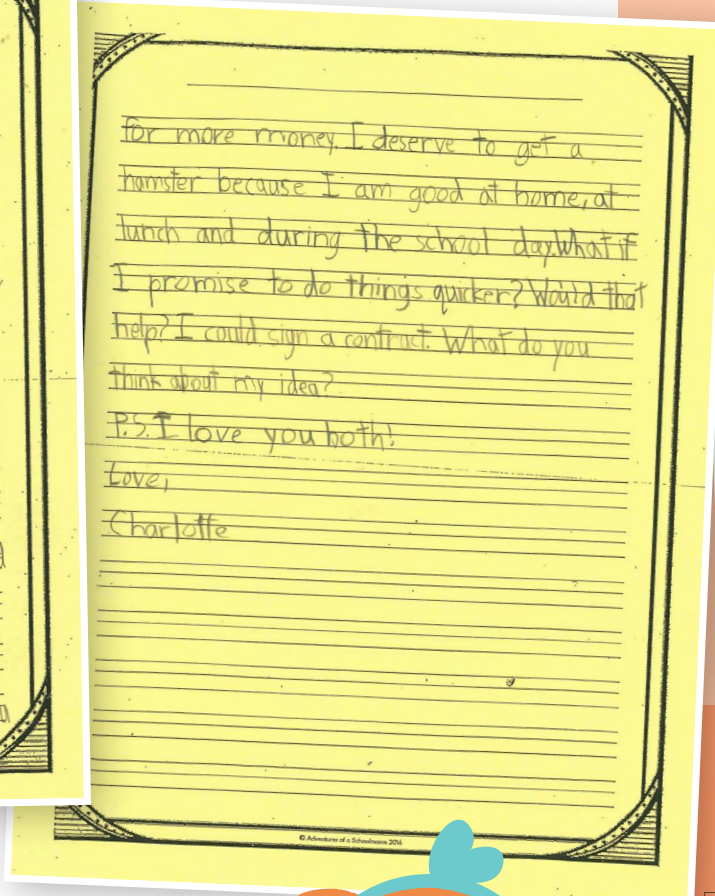 for more money. I deserve to get a
hamster because I am good at home, at
lunch and during the school day. What if
I promise to do things quicker? Would that
help? I could sign a contract. What do you
think about my idea?
P.S. I love you both!
Love,
Charlotte
© Adventures of a Schoolmarm 2016